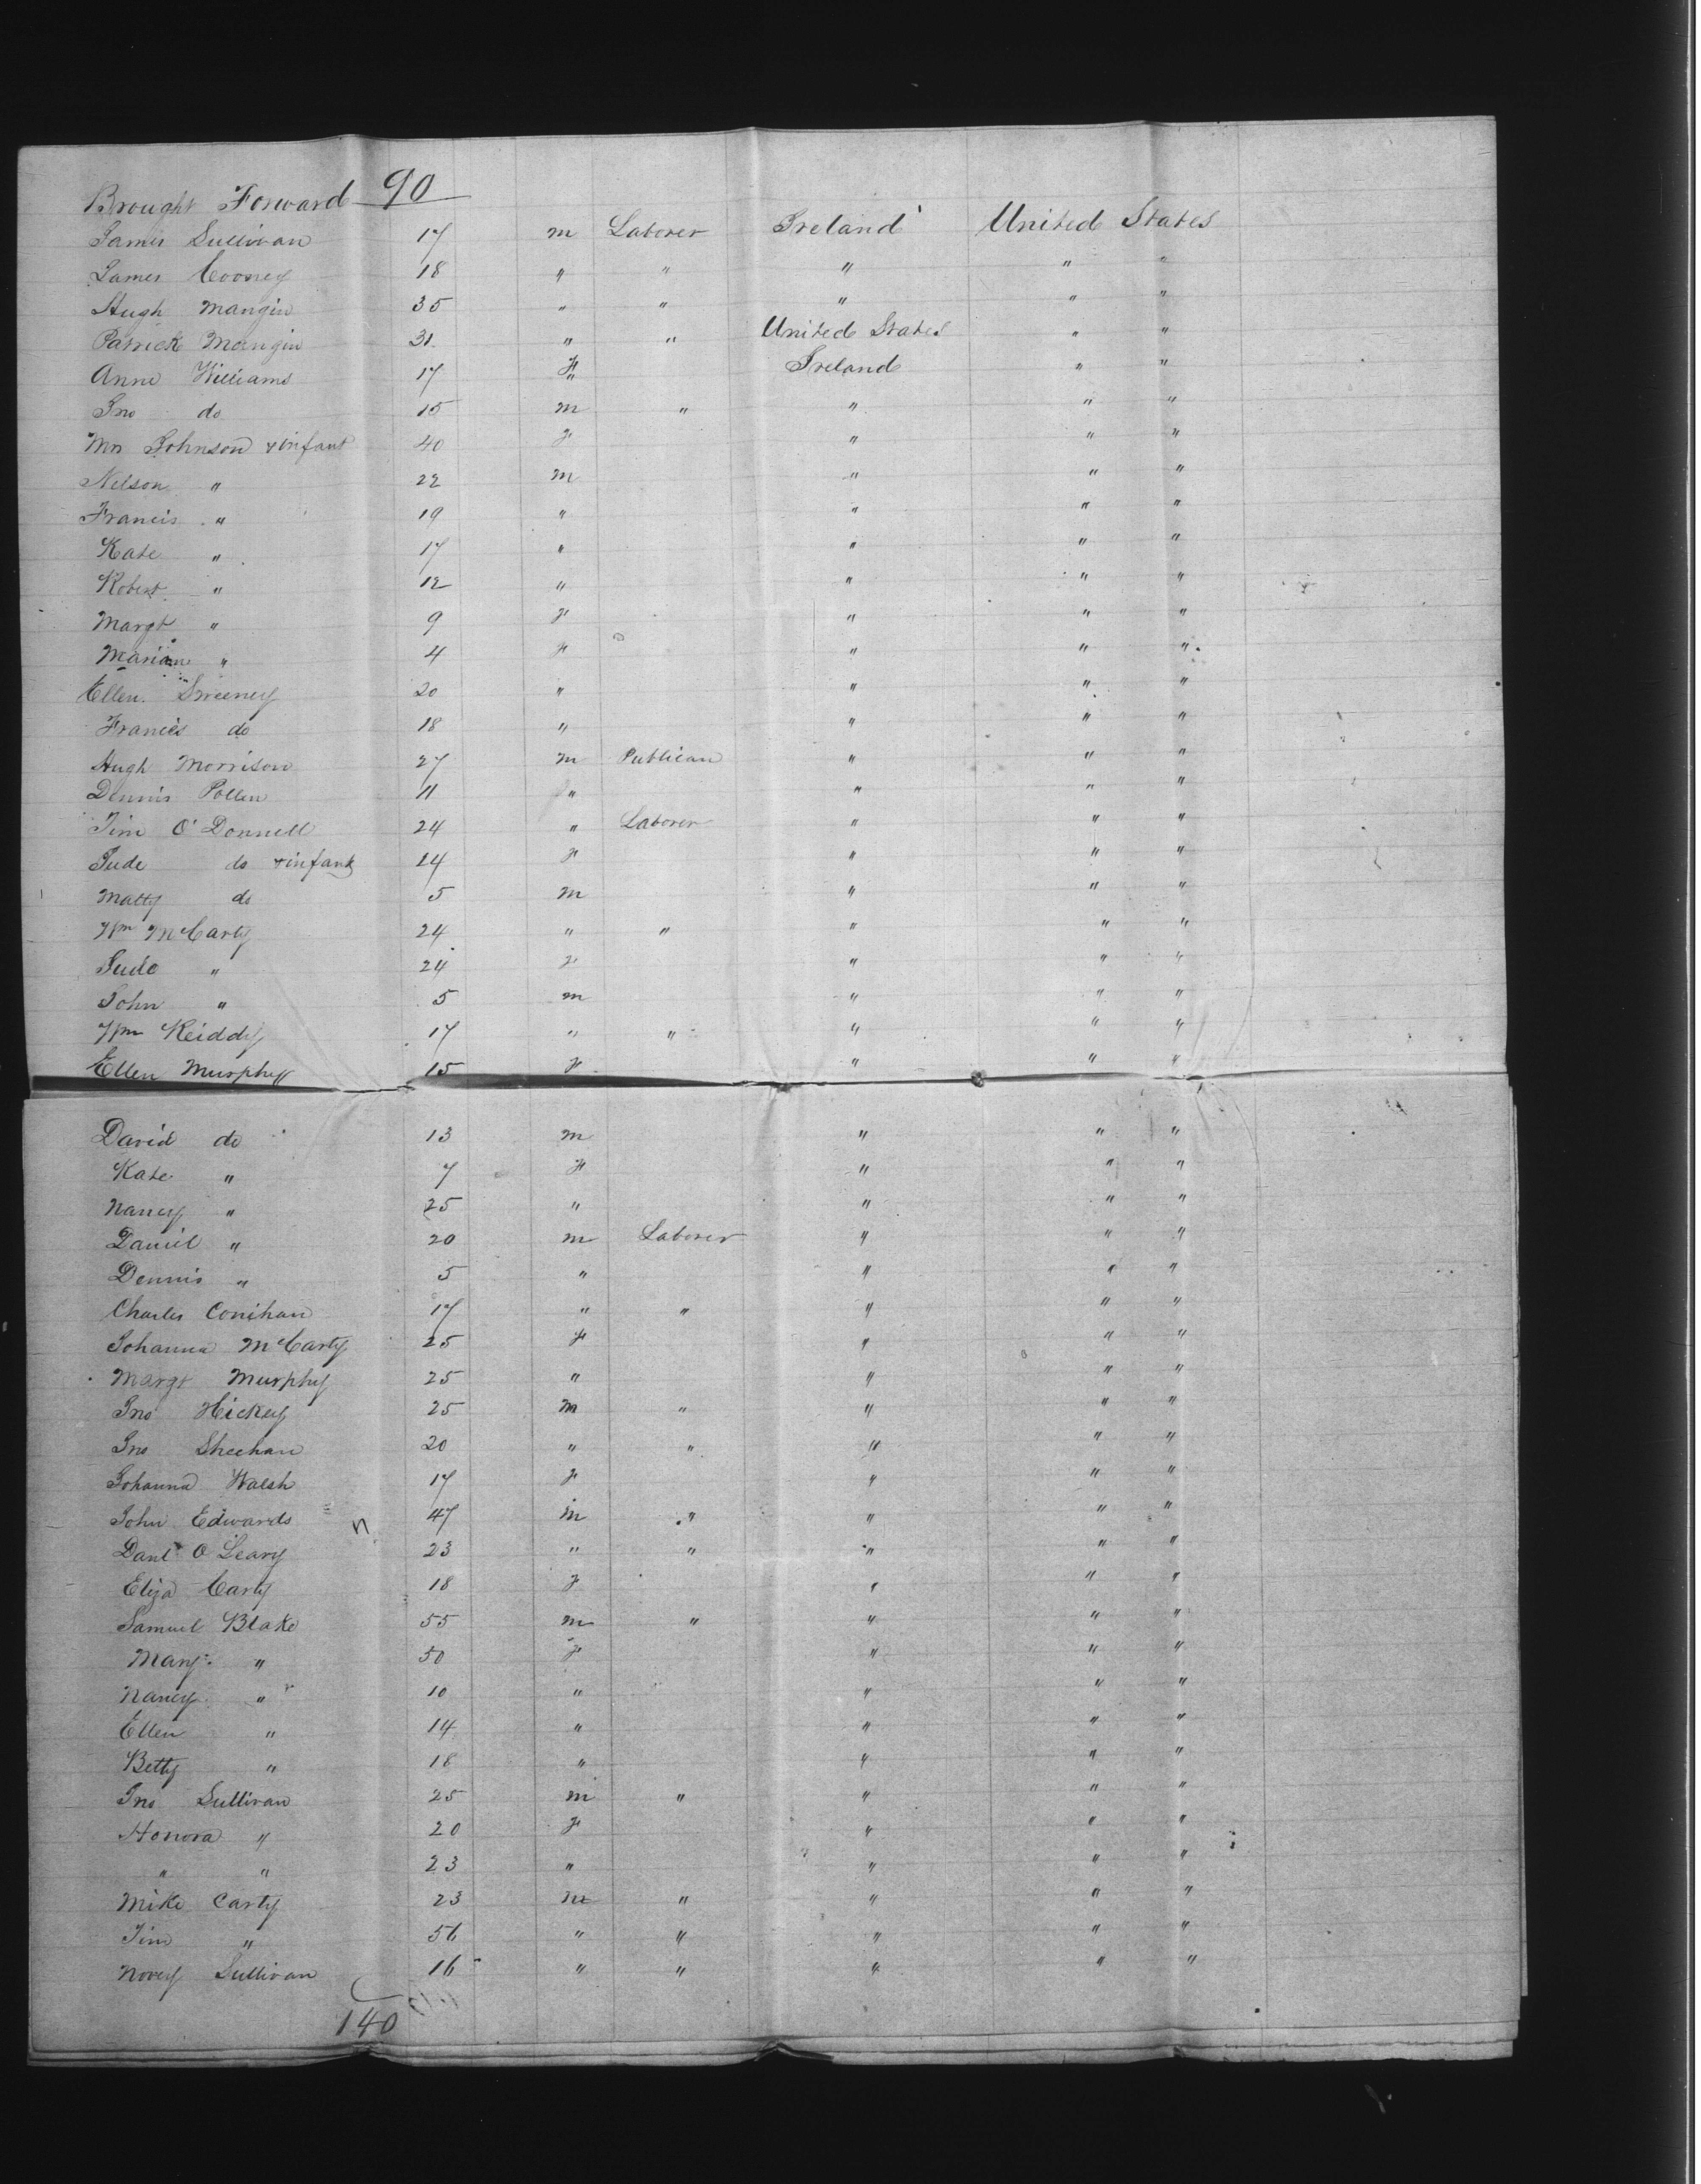 Brought Forward 90
James Sullivan 17 m Laborer Ireland United States
James Cooney 18 " " " " "
Hugh Mangin 35 " " " " "
Patrick Mangin 31 " " United States " "
Anne Williams 17 F " Ireland " "
Jno do 15 m " " " "
Mrs Johnson & infant 40 F " " "
Nelson " 22 m " " "
Francis " 19 " " " "
Kate " 17 " " " "
Robert " 12 " " " "
Margt " 9 F " " "
Mariann " 4 F " " "
Ellen Sweeney 20 " " " "
Francis do 18 " " " "
Hugh Morrison 27 m Publican " " "
Dennis Pollen 11 " " " "
Tim O'Donnell 24 " Laborer " " "
Jude do & infant 24 F " " "
Matty do 5 m " " "
Wm McCarty 24 " " " " "
Jude " 24 F " " "
John " 5 m " " "
Wm Keiddy 17 " " " " "
Ellen Murphy 15 F " " "
David do 13 m " " "
Kate " 7 F " " "
Nancy " 25 " " " "
Daniel " 20 m Laborer " " "
Dennis " 5 " " " "
Charles Conihan 17 " " " " "
Johanna McCarty 25 F " " "
Margt Murphy 25 " " " "
Jno Hickey 25 m " " " "
Jno Sheehan 20 " " " " "
Johanna Walsh 17 F " " "
John Edwards 47 m " " " "
Danl O'Leary 23 " " " " "
Eliza Carty 18 F " " "
Samuel Blake 55 m " " " "
Mary " 50 F " " "
Nancy " 10 " " " "
Ellen " 14 " " " "
Betty " 18 " " " "
Jno Sullivan 25 m " " " "
Honora " 20 F " " "
" " 23 " " " "
Mike Carty 23 m " " " "
Tim " 56 " " " " "
Norey Sullivan 16 " " " " "
140